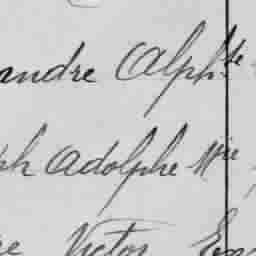 andre Alph.te
ph Adolphe M.rie
re Victor Em